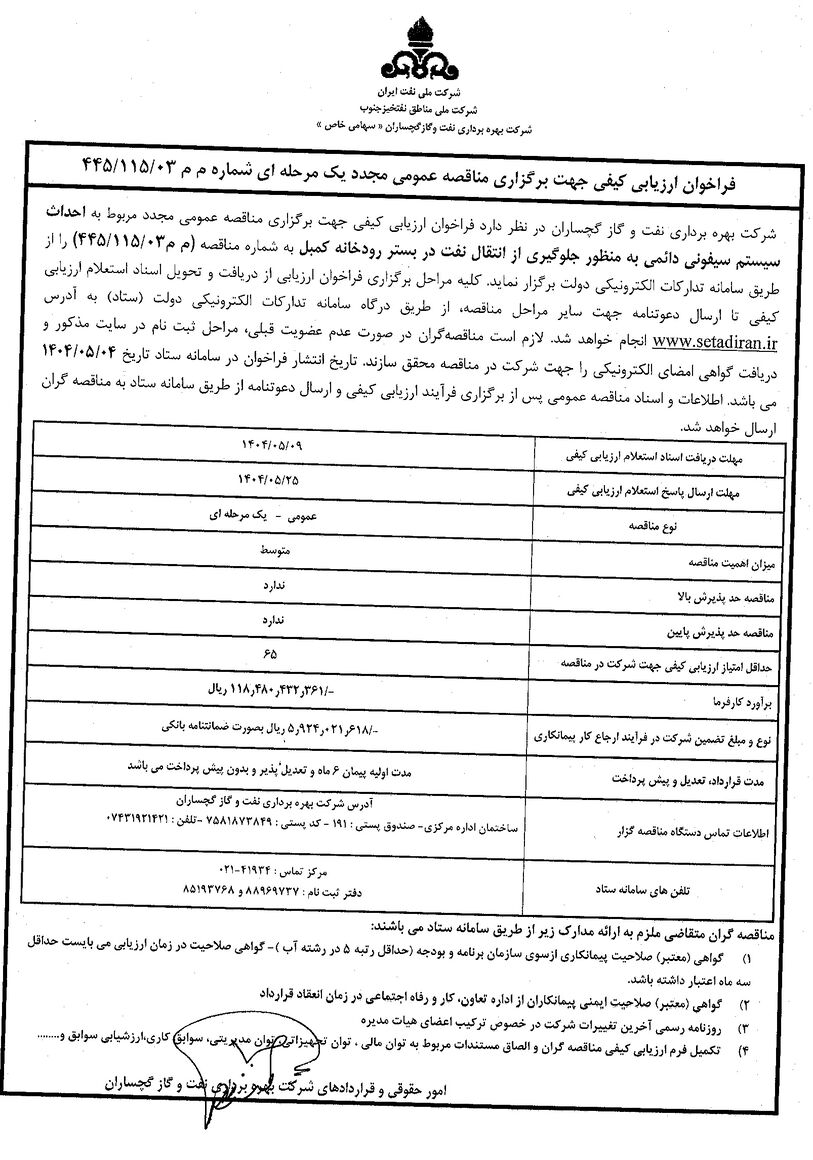 شرکت ملی نفت ایران
شرکت ملی مناطق نفتخیزجنوب
شرکت بهره برداری نفت وگازگچساران « سهامی خاص »
فراخوان ارزیابی کیفی جهت برگزاری مناقصه عمومی مجدد یک مرحله ای شماره م م ۴۴۵/۱۱۵/۰۳
شرکت بهره برداری نفت و گاز گچساران در نظر دارد فراخوان ارزیابی کیفی جهت برگزاری مناقصه عمومی مجدد مربوط به احداث
سیستم سیفونی دائمی به منظور جلوگیری از انتقال نفت در بستر رودخانه کمبل به شماره مناقصه (م م۴۴۵/۱۱۵/۰۳) را از
طریق سامانه تدارکات الکترونیکی دولت برگزار نماید. کلیه مراحل برگزاری فراخوان ارزیابی از دریافت و تحویل اسناد استعلام ارزیابی
کیفی تا ارسال دعوتنامه جهت سایر مراحل مناقصه، از طریق درگاه سامانه تدارکات الکترونیکی دولت (ستاد) به آدرس
www.setadiran.ir انجام خواهد شد. لازم است مناقصه‌گران در صورت عدم عضویت قبلی، مراحل ثبت نام در سایت مذکور و
دریافت گواهی امضای الکترونیکی را جهت شرکت در مناقصه محقق سازند. تاریخ انتشار فراخوان در سامانه ستاد تاریخ ۱۴۰۴/۰۵/۰۴
می باشد. اطلاعات و اسناد مناقصه عمومی پس از برگزاری فرآیند ارزیابی کیفی و ارسال دعوتنامه از طریق سامانه ستاد به مناقصه گران
ارسال خواهد شد.
مهلت دریافت اسناد استعلام ارزیابی کیفی ۱۴۰۴/۰۵/۰۹
مهلت ارسال پاسخ استعلام ارزیابی کیفی ۱۴۰۴/۰۵/۲۵
نوع مناقصه عمومی - یک مرحله ای
میزان اهمیت مناقصه متوسط
مناقصه حد پذیرش بالا ندارد
مناقصه حد پذیرش پایین ندارد
حداقل امتیاز ارزیابی کیفی جهت شرکت در مناقصه ۶۵
برآورد کارفرما ۱۱۸٫۴۸۰٫۴۳۲٫۳۶۱/- ریال
نوع و مبلغ تضمین شرکت در فرآیند ارجاع کار پیمانکاری ۵٫۹۲۴٫۰۲۱٫۶۱۸/- ریال بصورت ضمانتنامه بانکی
مدت قرارداد، تعدیل و پیش پرداخت مدت اولیه پیمان ۶ ماه و تعدیل پذیر و بدون پیش پرداخت می باشد
آدرس شرکت بهره برداری نفت و گاز گچساران
اطلاعات تماس دستگاه مناقصه گزار ساختمان اداره مرکزی- صندوق پستی : ۱۹۱ - کد پستی : ۷۵۸۱۸۷۳۸۴۹ -تلفن : ۰۷۴۳۱۹۲۱۴۲۱
مرکز تماس : ۴۱۹۳۴-۰۲۱
تلفن های سامانه ستاد دفتر ثبت نام : ۸۸۹۶۹۷۳۷ و ۸۵۱۹۳۷۶۸
مناقصه گران متقاضی ملزم به ارائه مدارک زیر از طریق سامانه ستاد می باشند:
۱) گواهی (معتبر) صلاحیت پیمانکاری ازسوی سازمان برنامه و بودجه (حداقل رتبه ۵ در رشته آب )- گواهی صلاحیت در زمان ارزیابی می بایست حداقل
سه ماه اعتبار داشته باشد.
۲) گواهی (معتبر) صلاحیت ایمنی پیمانکاران از اداره تعاون، کار و رفاه اجتماعی در زمان انعقاد قرارداد
۳) روزنامه رسمی آخرین تغییرات شرکت در خصوص ترکیب اعضای هیات مدیره
۴) تکمیل فرم ارزیابی کیفی مناقصه گران و الصاق مستندات مربوط به توان مالی ، توان تجهیزاتی، توان مدیریتی، سوابق کاری،ارزشیابی سوابق و........
امور حقوقی و قراردادهای شرکت بهره برداری نفت و گاز گچساران